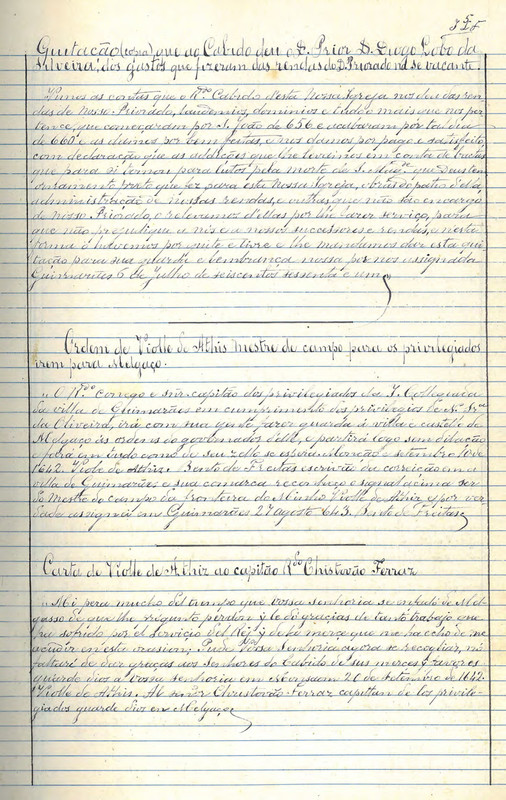 Quitação (copia) que ao Cabido deu o D. Prior D. Diogo Lobo da
Silveira, dos gastos que fizeram das rendas do D. Priorado na se vacante.
Vimos as contas que o Rdo Cabido desta Nossa Igreja nos deu das ren-
das de Nosso Priorado, laudemios, dominios e tudo o mais que nos per-
tence, que começaram por S. João de 656 e acabaram por tal dia
de 660 e as damos por bem feitas, e nos damos por pago e satisfeito,
com declaração que as addições que lhe levamos em conta de
que para si tomou para lutos pela morte da que Deus tem
ornamento preto que fez para esta Nossa Igreja, obras do
administração de nossas rendas, e outras que não são encargo
de Nosso Priorado, o relevamos d'ellas por lhe fazer serviço, para
que não prejudique a nós e a nossos successores e rendas, e nesta
forma o havemos por quite e livre e lhe mandamos dar esta qui-
tação para sua guarda e lembrança nossa por nós assignada
Guimarães 6 de Julho de seiscentos sessenta e um
Ordem de Violle de Athis mestre de campo para os privilegiados
irem para Melgaço.
„ O Rdo conego e snr capitão dos privilegiados da I. Collegiada
da villa de Guimarães em cumprimento dos privilegios de N. Sra
da Oliveira, irá com sua gente fazer guarda á villa e castello de
Melgaço ás ordens do governador d'elle, e partirá logo sem dilação
e fará em tudo como de seu zello se espera setembro 10 de
1642. Violle de Athiz. Bento de Freitas escrivão da correição em a
villa de Guimarães e sua comarca reconheço o signal acima ser
do Mestre de campo da fronteira do Minho Violle de Athiz e por ver-
dade assignei em Guimarães 27 agosto 643. Bento de Freitas
Carta de Violle de Athiz ao capitão Rdo Christovão Ferraz
„ Mi pera mucho del tiempo que vossa senhoria se de Mel-
gasso de qua lhe perdon y le doi gracias de tanto trabajo que
ha sofrido por el servicio del Rey y de la merce que me ha echo de me
acudir en esta ocasion; Pude Vossa Senhoria agora se recoalhar, no
faltaré de der graças aos Senhores do Cabido de sus merces y favores
guarde dios a vossa senhoria em Monsam 20 de setembro de 1642.
Violle de Athis. Al señor Christovão Ferraz capittan de los privile-
giados guarde dios en Melgaço